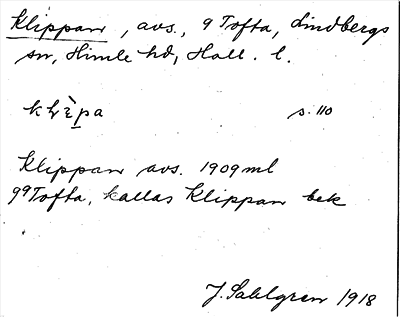 Klippan, avs., 9 Tofta, Lindbergs
sn, Himle hd, Hall. l.
klὲpa s. 110
Klippan avs. 1909 ml
99 Tofta, kallas Klippan bek
J. Sahlgren 1918